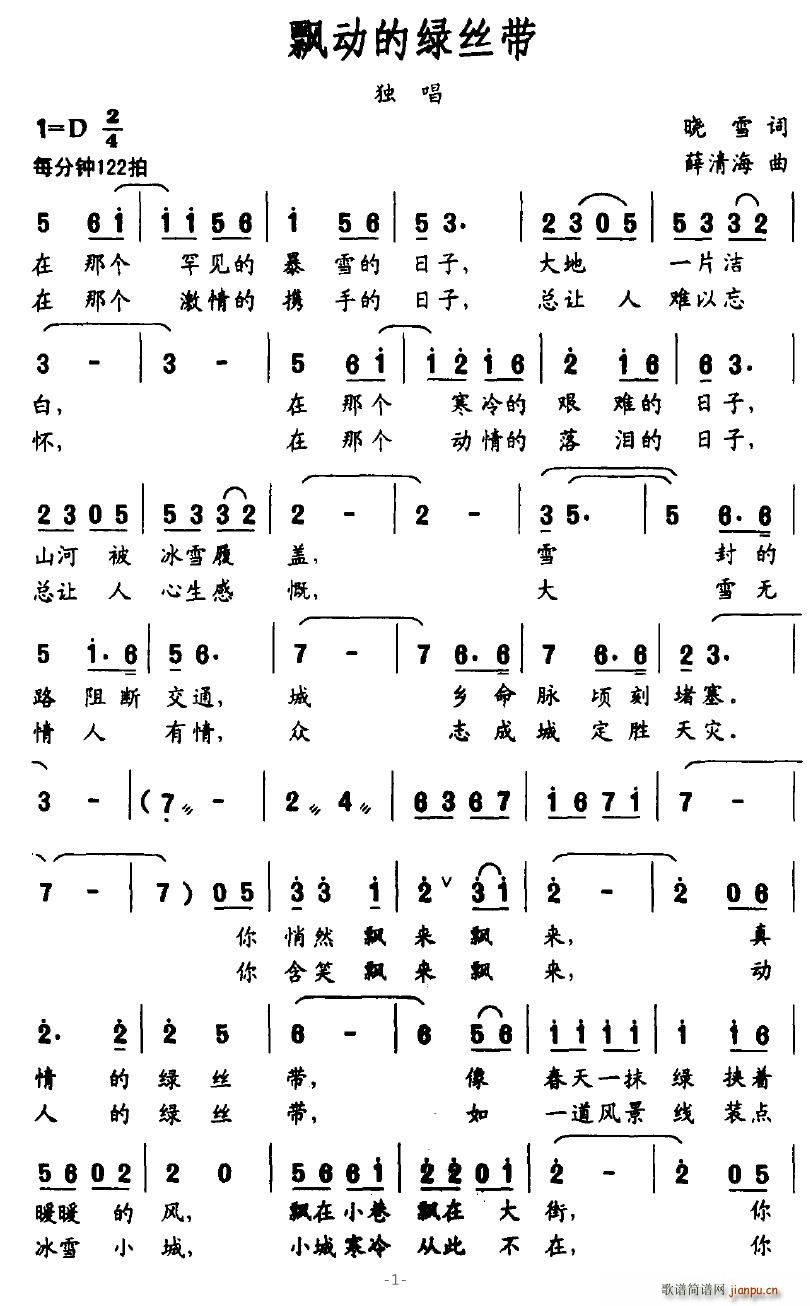 飘动的绿丝带
独 唱
1=D 2/4
晓 雪 词
每分钟122拍
薛清海 曲
5 6 i i i 5 6 i 5 6 5 3. 2 3 0 5 5 3 3 2
在 那个 罕见的 暴 雪的 日子, 大地 一片洁
在 那个 激情的 携 手的 日子, 总让 人 难以忘
3 - 3 - 5 6 i i 2 i 6 2 i 6 6 3.
白, 在 那个 寒冷的 艰 难的 日子,
怀, 在 那个 动情的 落 泪的 日子,
2 3 0 5 5 3 3 2 2 - 2 - 3 5. 5 6. 6
山河 被 冰雪履 盖, 雪 封的
总让 人 心生感 慨, 大 雪无
5 i. 6 5 6. 7 - 7 6. 6 7 6. 6 2 3.
路 阻断 交通, 城 乡命 脉 顷刻 堵塞.
情 人 有情, 众 志成 城 定胜 天灾.
3 - ( 7 - 2 4 6 3 6 7 i 6 7 i 7 -
7 - 7 ) 0 5 3 3 i 2 ∨ 3 i 2 - 2 0 6
你 悄然 飘 来 飘 来, 真
你 含笑 飘 来 飘 来, 动
2. 2 2 5 6 - 6 5 6 i i i i i i 6
情 的 绿 丝 带, 像 春天一抹 绿 挟着
人 的 绿 丝 带, 如 一道风景 线 装点
5 6 0 2 2 0 5 6 6 i 2 2 0 i 2 - 2 0 5
暖暖 的 风, 飘在小巷 飘在 大 街, 你
冰雪 小 城, 小城寒冷 从此 不 在, 你
-1-
歌谱简谱网
jianpu.cn